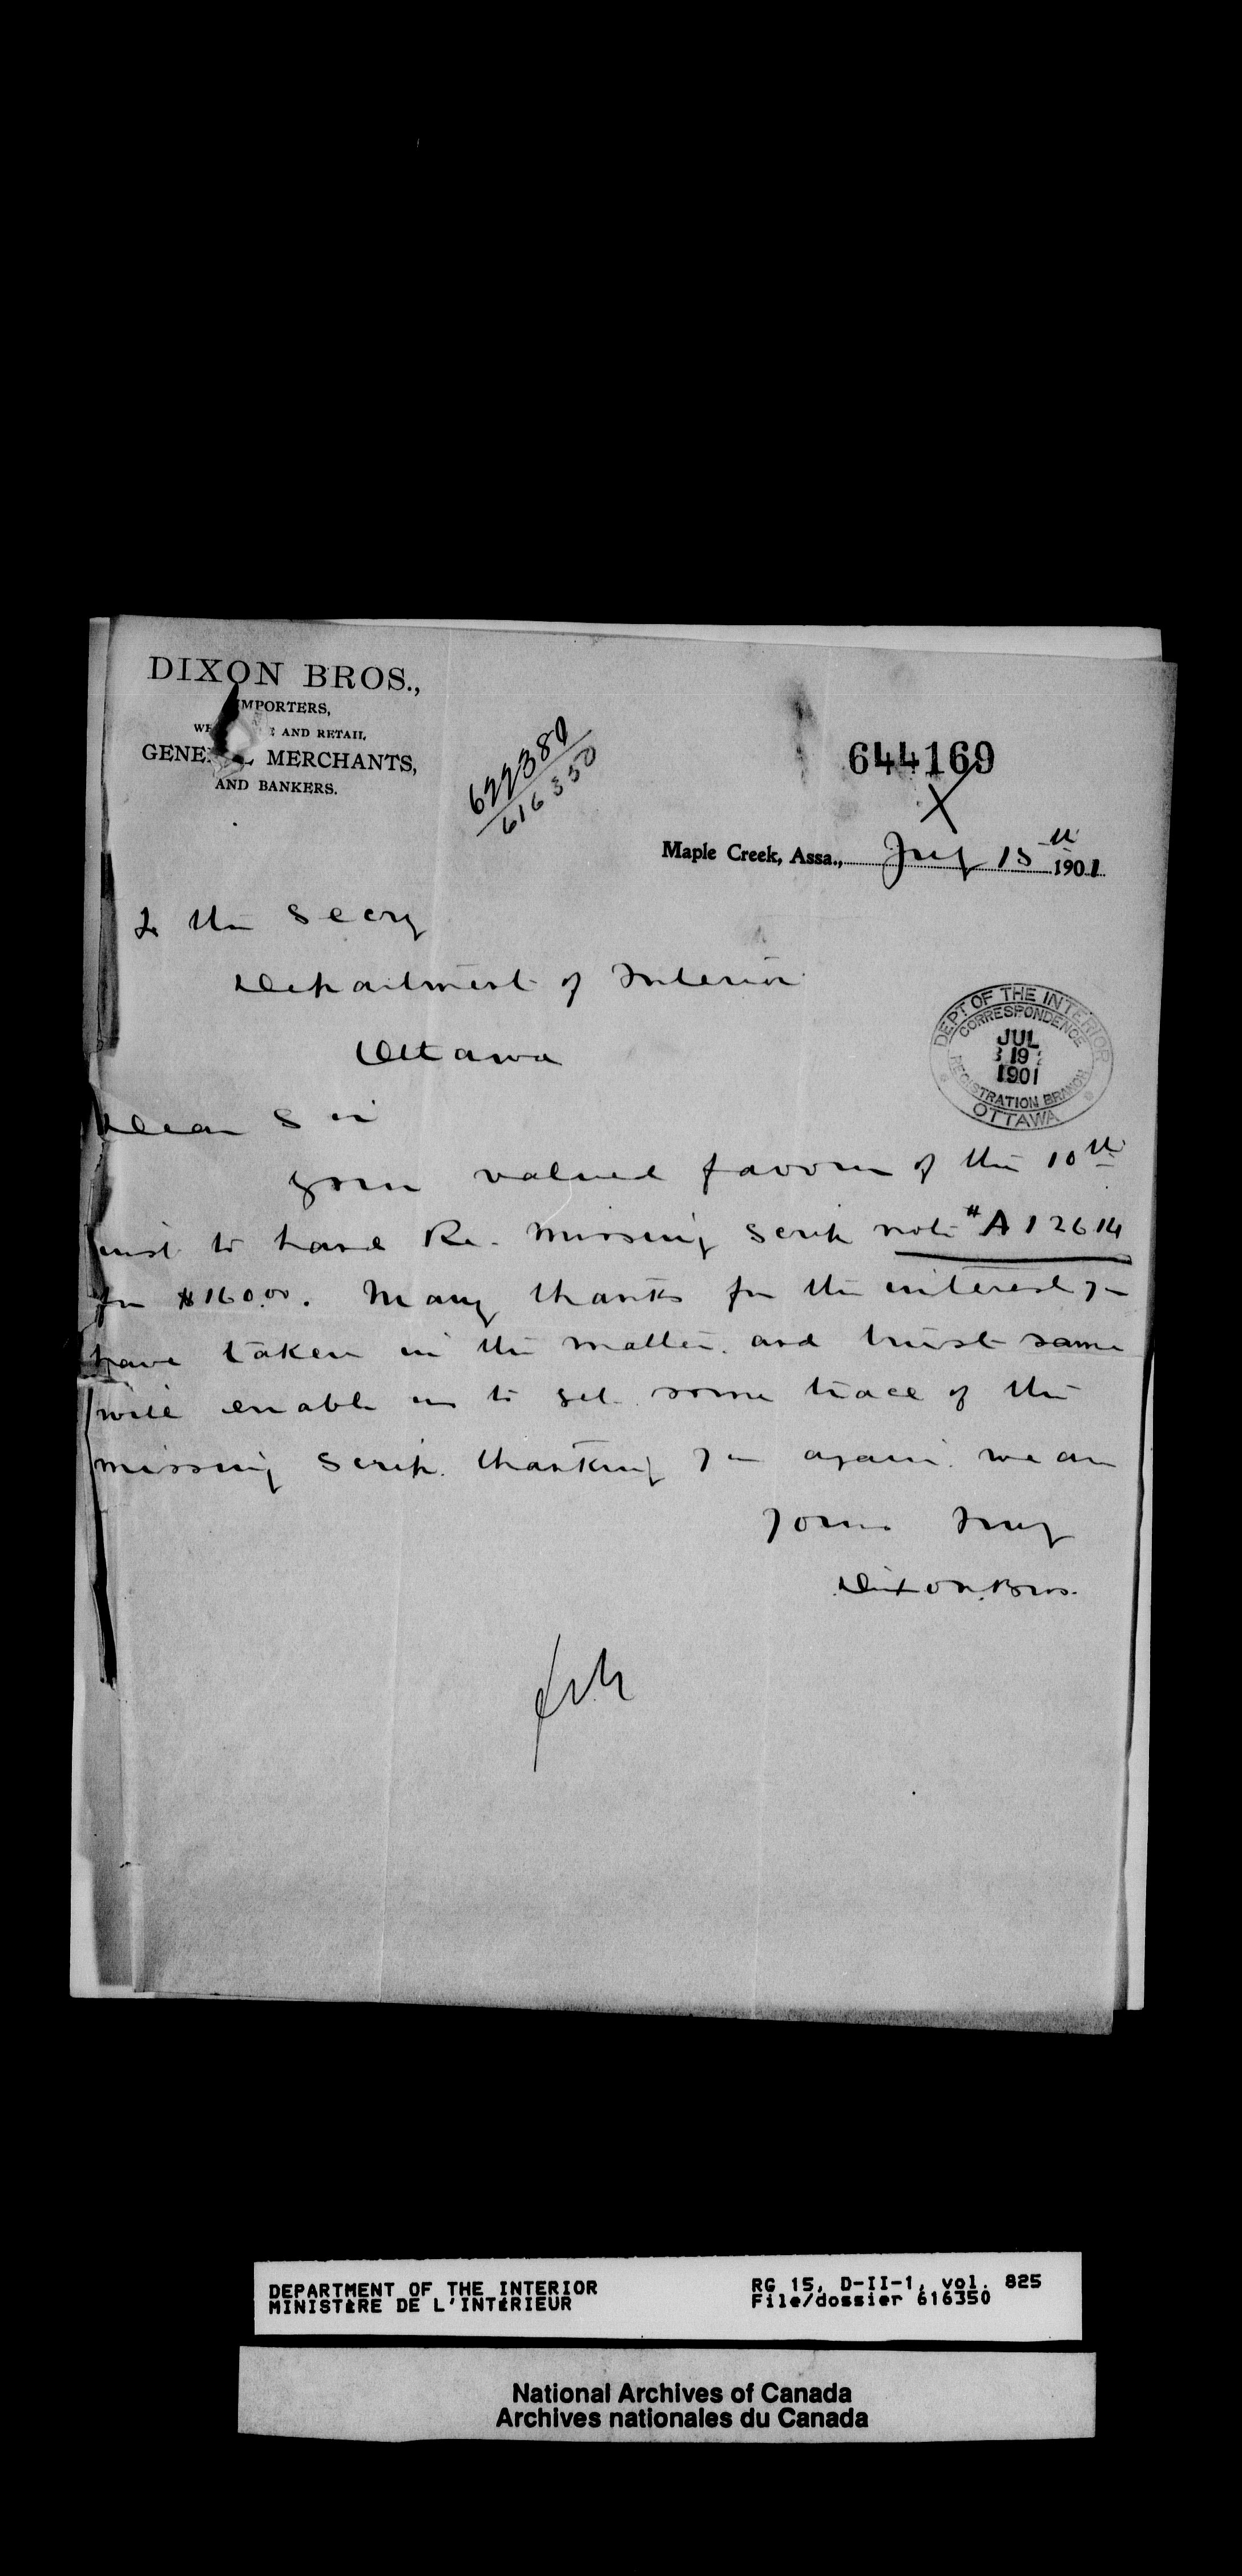 DIXON BROS.,
IMPORTERS,
AND RETAIL
GENERAL MERCHANTS,
AND BANKERS.
622380
616350
644169
Maple Creek, Assa., July 15th 1901
To the Secry
Department of Interior
Ottawa
DEPT OF THE INTERIOR
CORRESPONDENCE
JUL
19
1901
REGISTRATION BRANCH
OTTAWA
Dear Sir
your valued favour of the 10th
inst to hand Re. missing scrip note #A12614
for $160.00. Many thanks for the interest you
have taken in the matter. and trust same
will enable us to get some trace of the
missing scrip. thanking you again. we are
yours truly
Dixon Bros.
DEPARTMENT OF THE INTERIOR
MINISTÈRE DE L'INTÉRIEUR
RG 15, D-II-1, vol. 825
File/dossier 616350
National Archives of Canada
Archives nationales du Canada